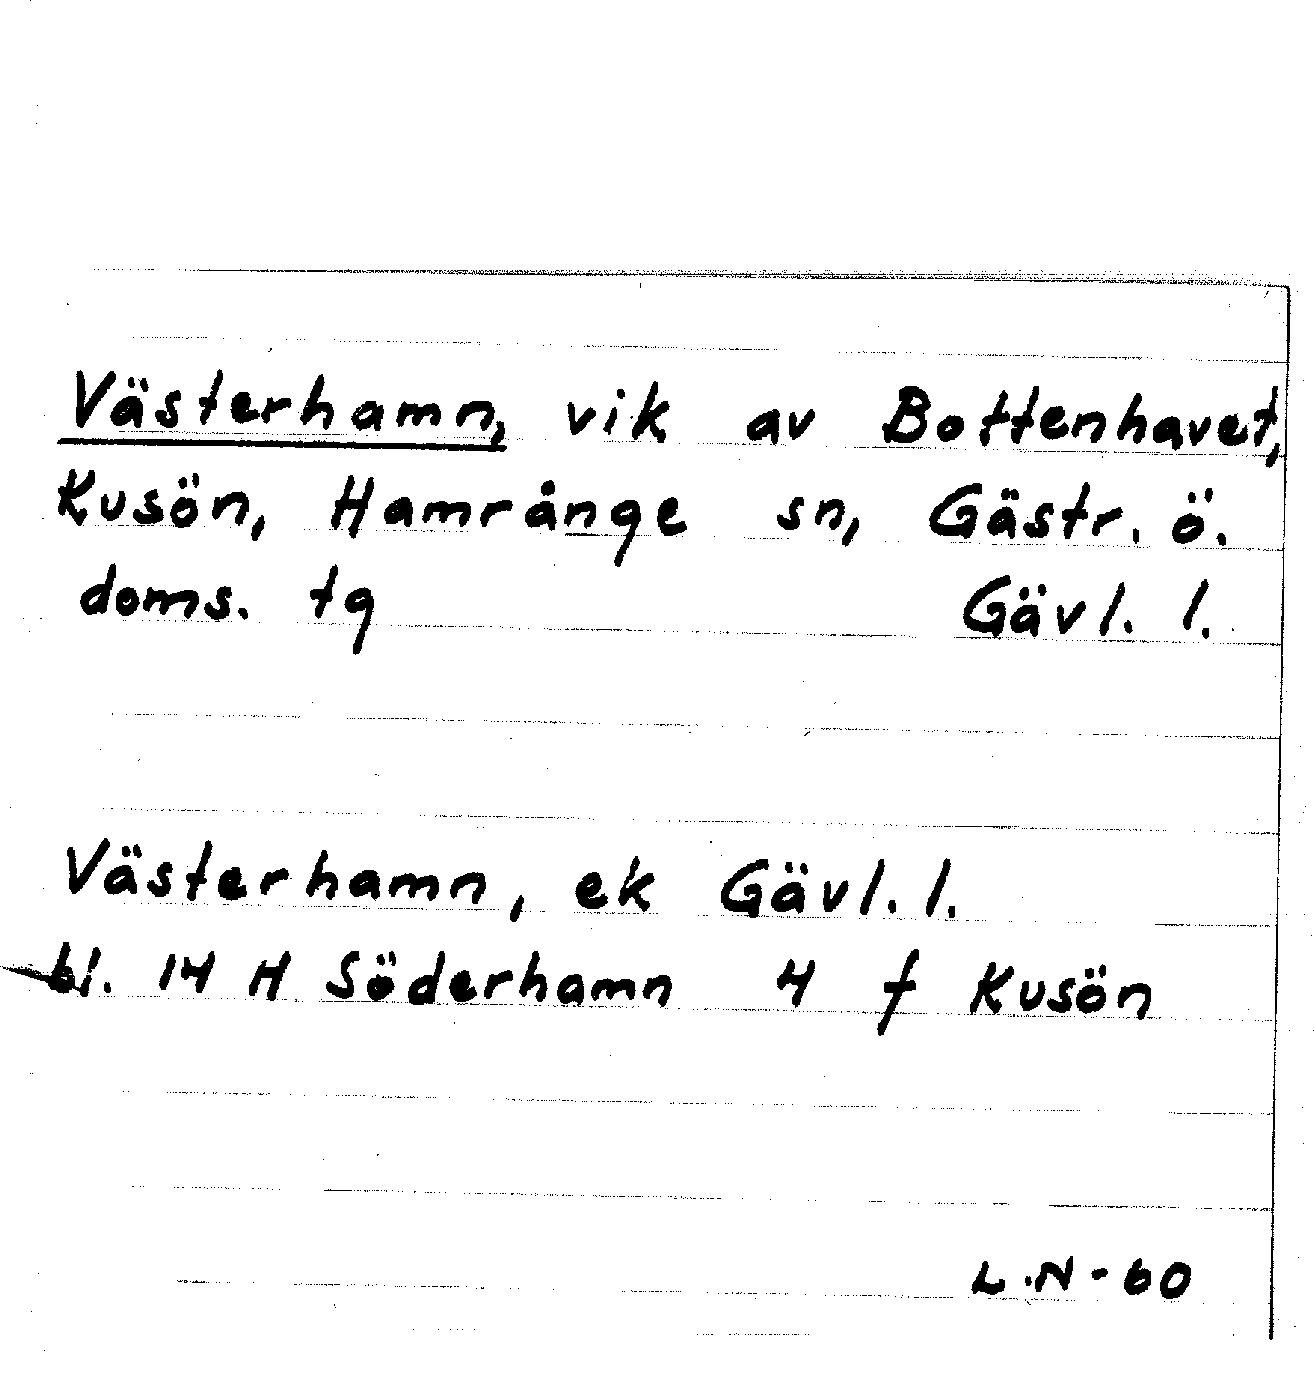 Västerhamn, vik av Bottenhavet,
Kusön, Hamrånge sn, Gästr. ö.
doms. tg Gävl. l.
Västerhamn, ek Gävl. l.
bl. 14 H Söderhamn 4 f Kusön
L.N-60